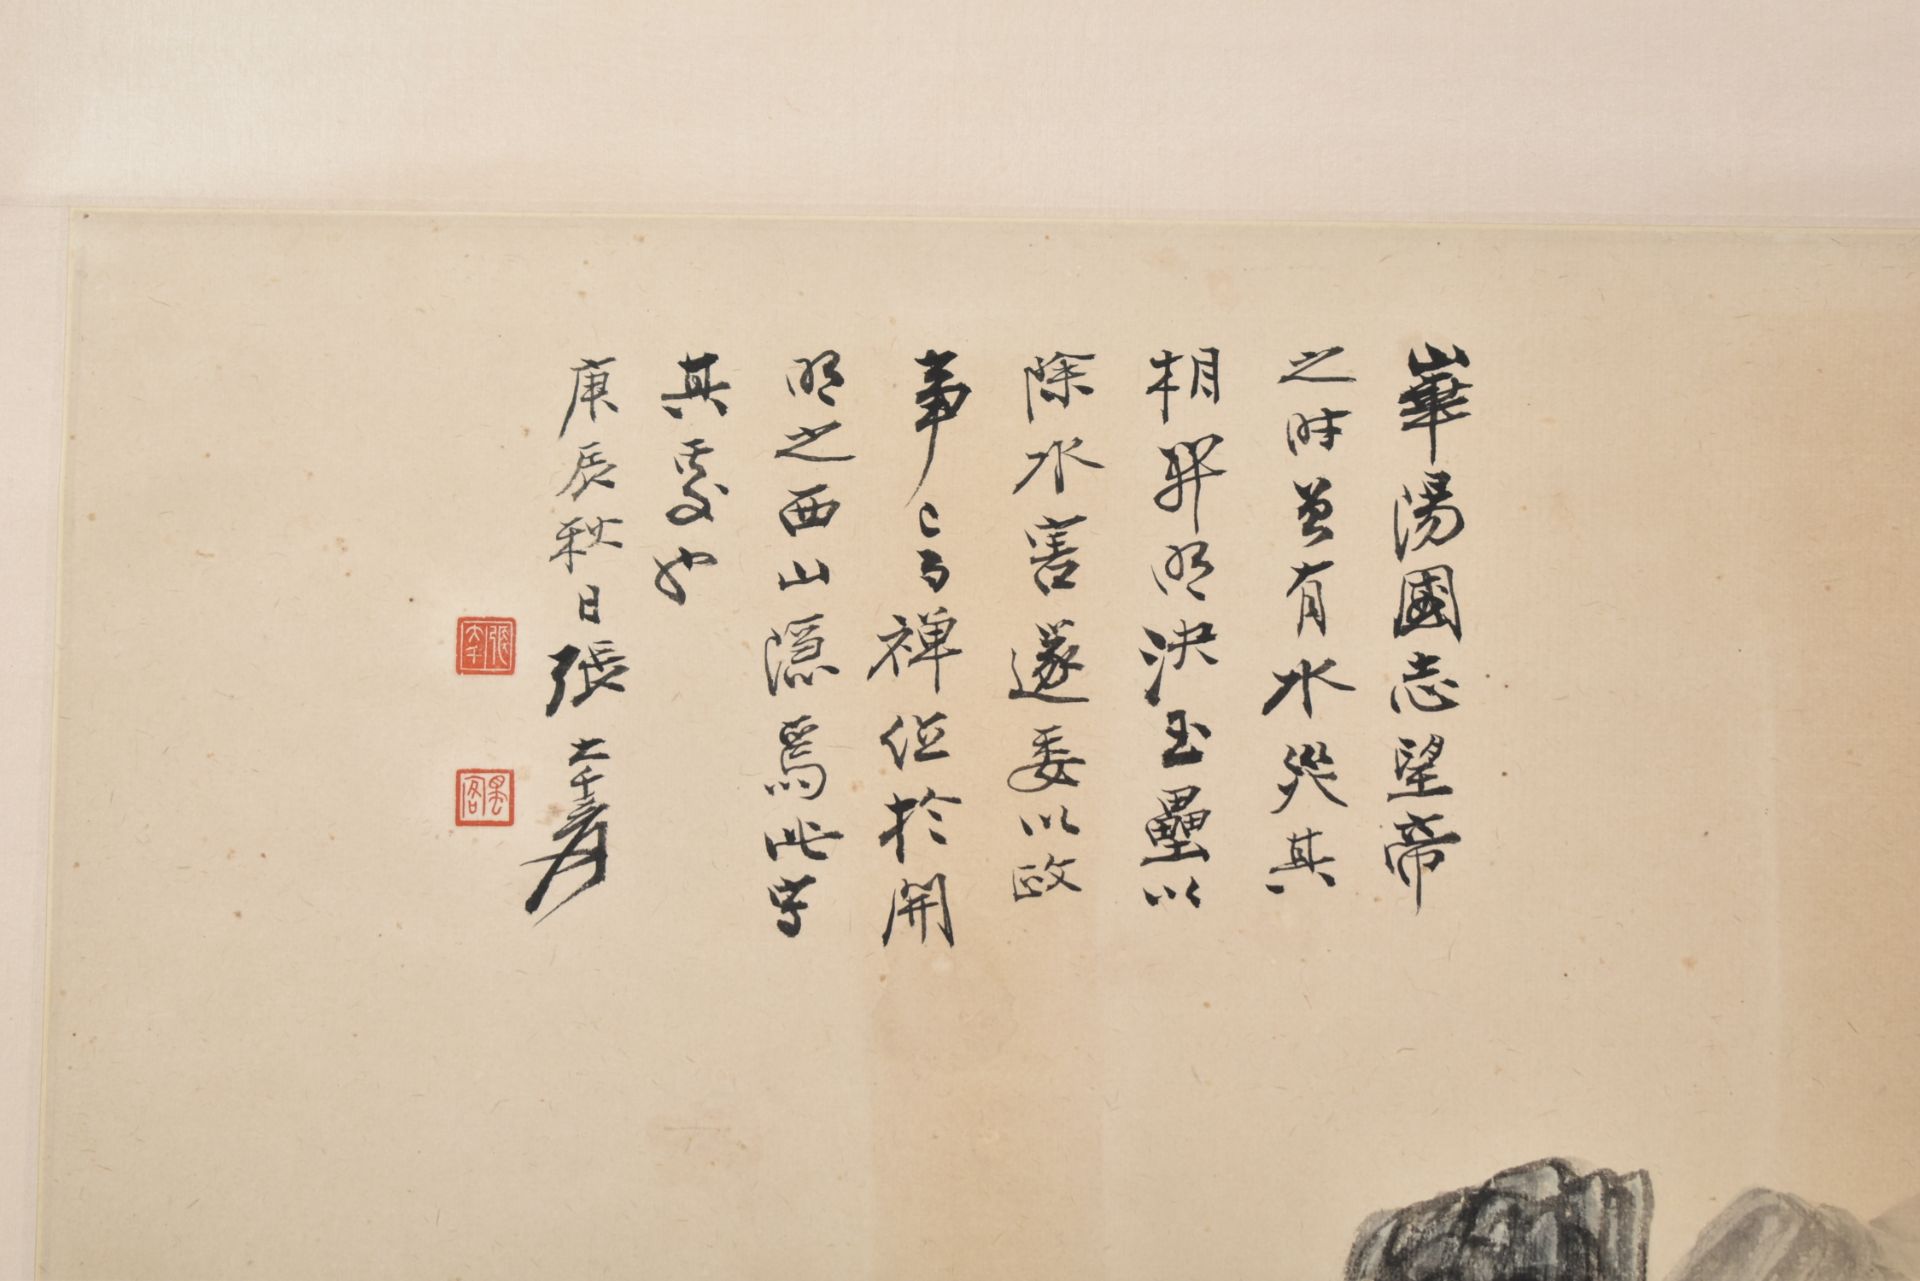 崋陽國志望帝
之時曾有水災其
相開明決玉壘以
除水害遂委以政
事已而禪位於開
明之西山隱焉此寫
其處也
庚辰秋日張大千爰
張大千
墨客